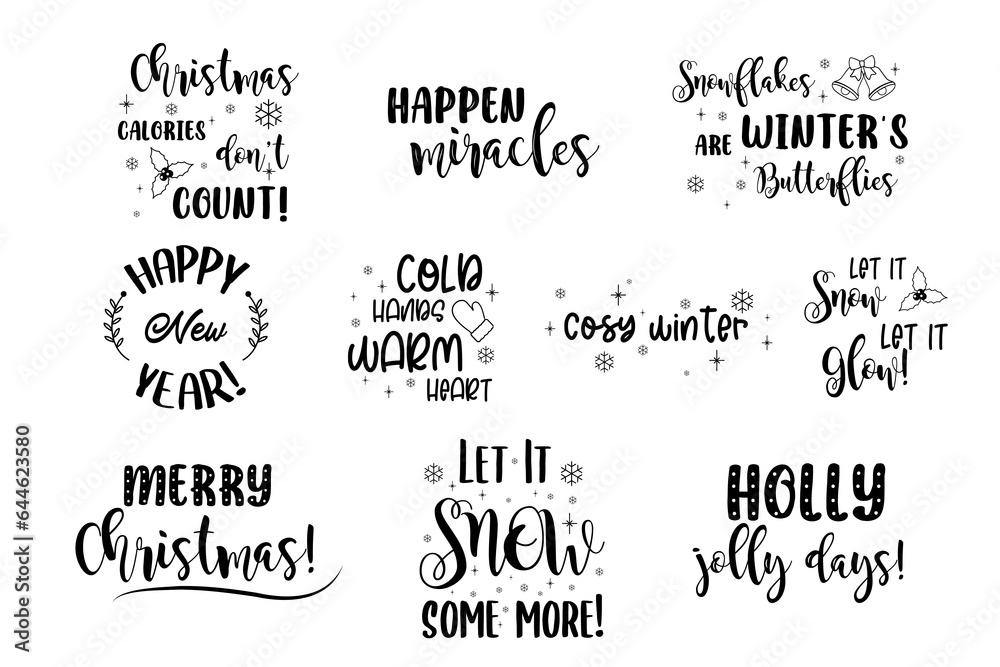 Christmas
CALORIES
don't
COUNT!
HAPPEN
miracles
Snowflakes
ARE WINTER'S
Butterflies
HAPPY
New
YEAR!
COLD
HANDS
WARM
HEART
cosy winter
LET IT
Snow
LET IT
Glow!
MERRY
Christmas!
LET IT
SNOW
SOME MORE!
HOLLY
jolly days!
Adobe Stock | #644623580
Adobe Stock